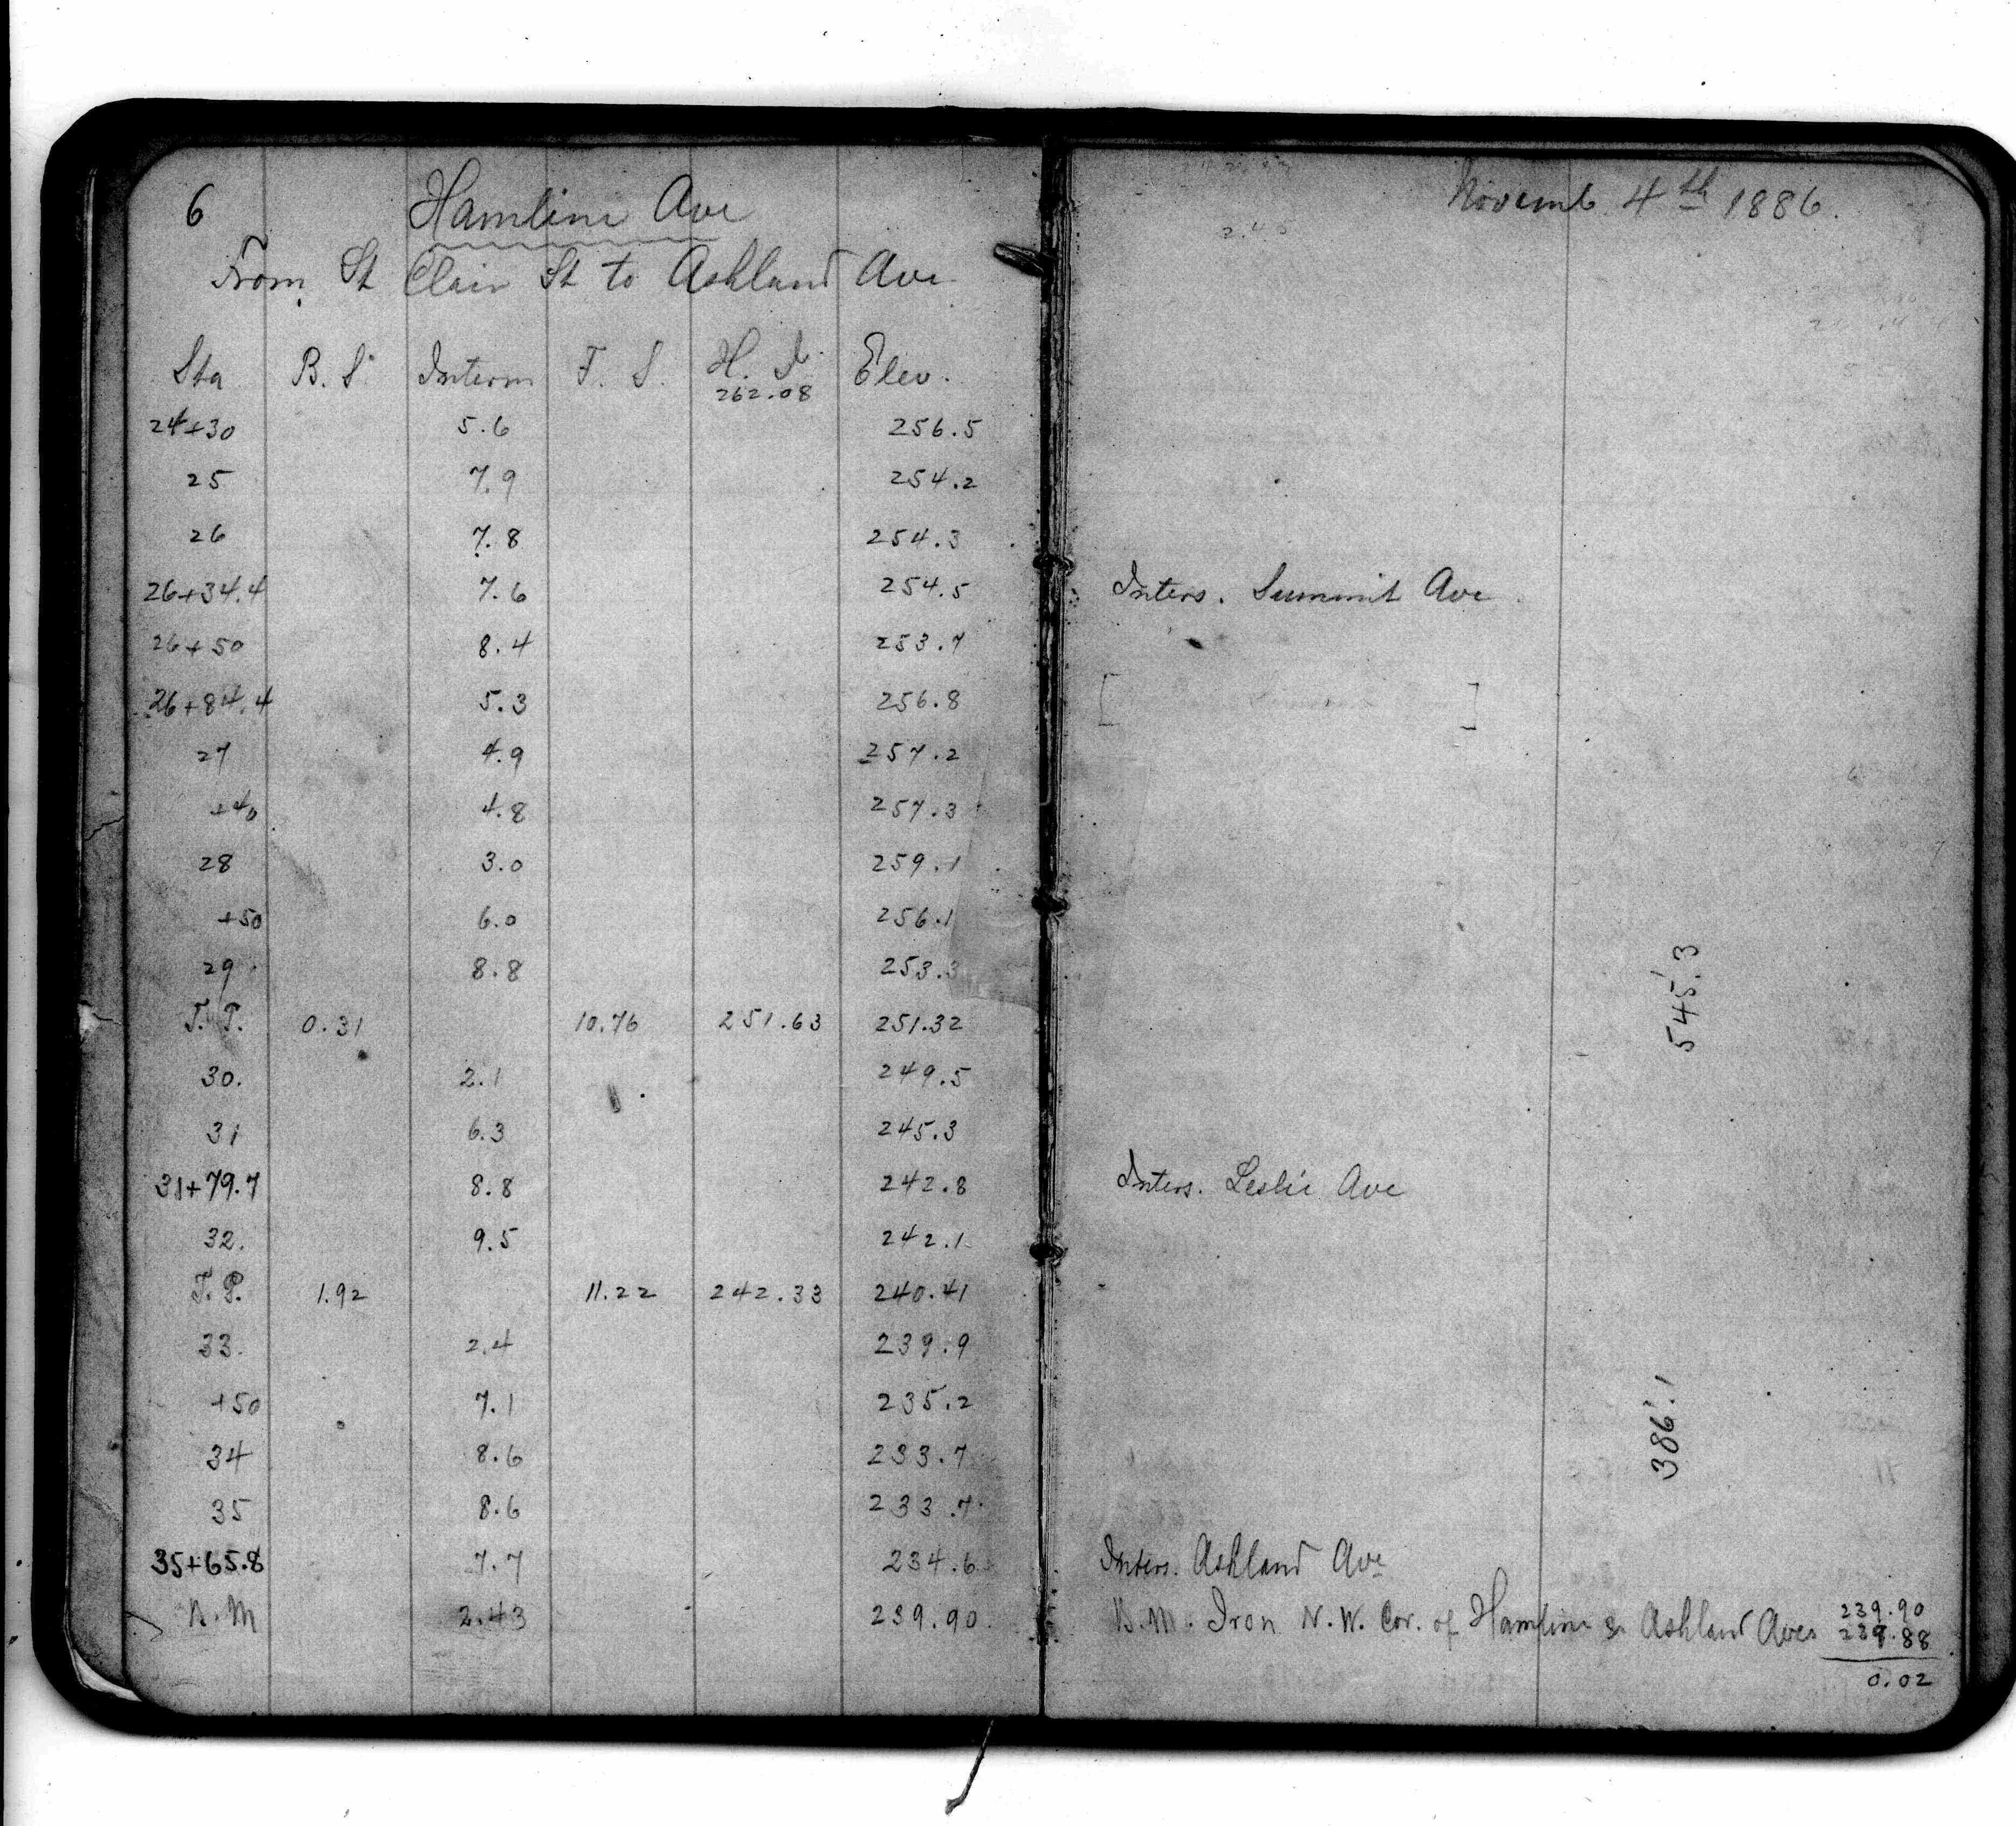 6 Hamline Ave
From St Clair St to Ashland Ave
Sta B.S. Interm F.S. H.I. Elev.
262.08
24+30 5.6 256.5
25 7.9 254.2
26 7.8 254.3
26+34.4 7.6 254.5
26+50 8.4 253.7
26+84.4 5.3 256.8
27 4.9 257.2
+40 4.8 257.3
28 3.0 259.1
+50 6.0 256.1
29 8.8 253.3
T.P. 0.31 10.76 251.63 251.32
30. 2.1 249.5
31 6.3 245.3
31+79.7 8.8 242.8
32. 9.5 242.1
T.P. 1.92 11.22 242.33 240.41
33. 2.4 239.9
+50 7.1 235.2
34 8.6 233.7
35 8.6 233.7
35+65.8 7.7 234.6
B.M 2.43 239.90
Novemb 4th 1886.
Inters. Summit Ave
[ ]
545'.3
Inters. Leslie Ave
386'.1
Inters. Ashland Ave
B.M. Iron N.W. Cor. of Hamline & Ashland Aves 239.90
239.88
0.02